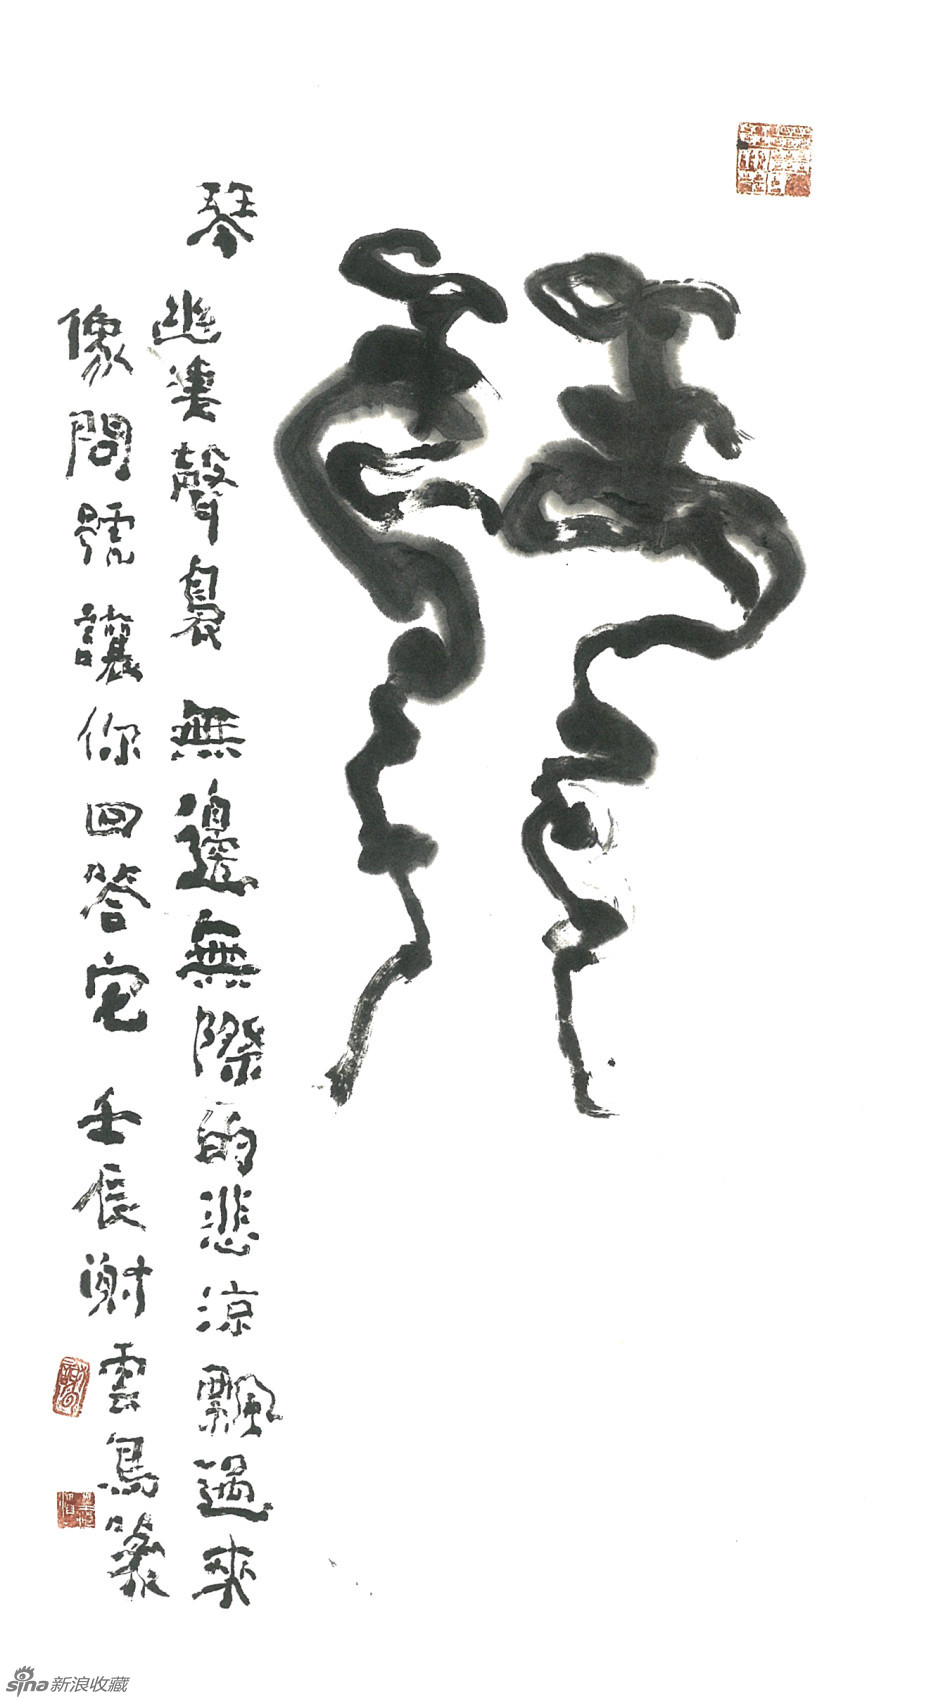 琴 幽凄聲裊 無邊無際的悲涼飄過來
像問號讓你回答它 壬辰謝雲鳥篆
sina新浪收藏